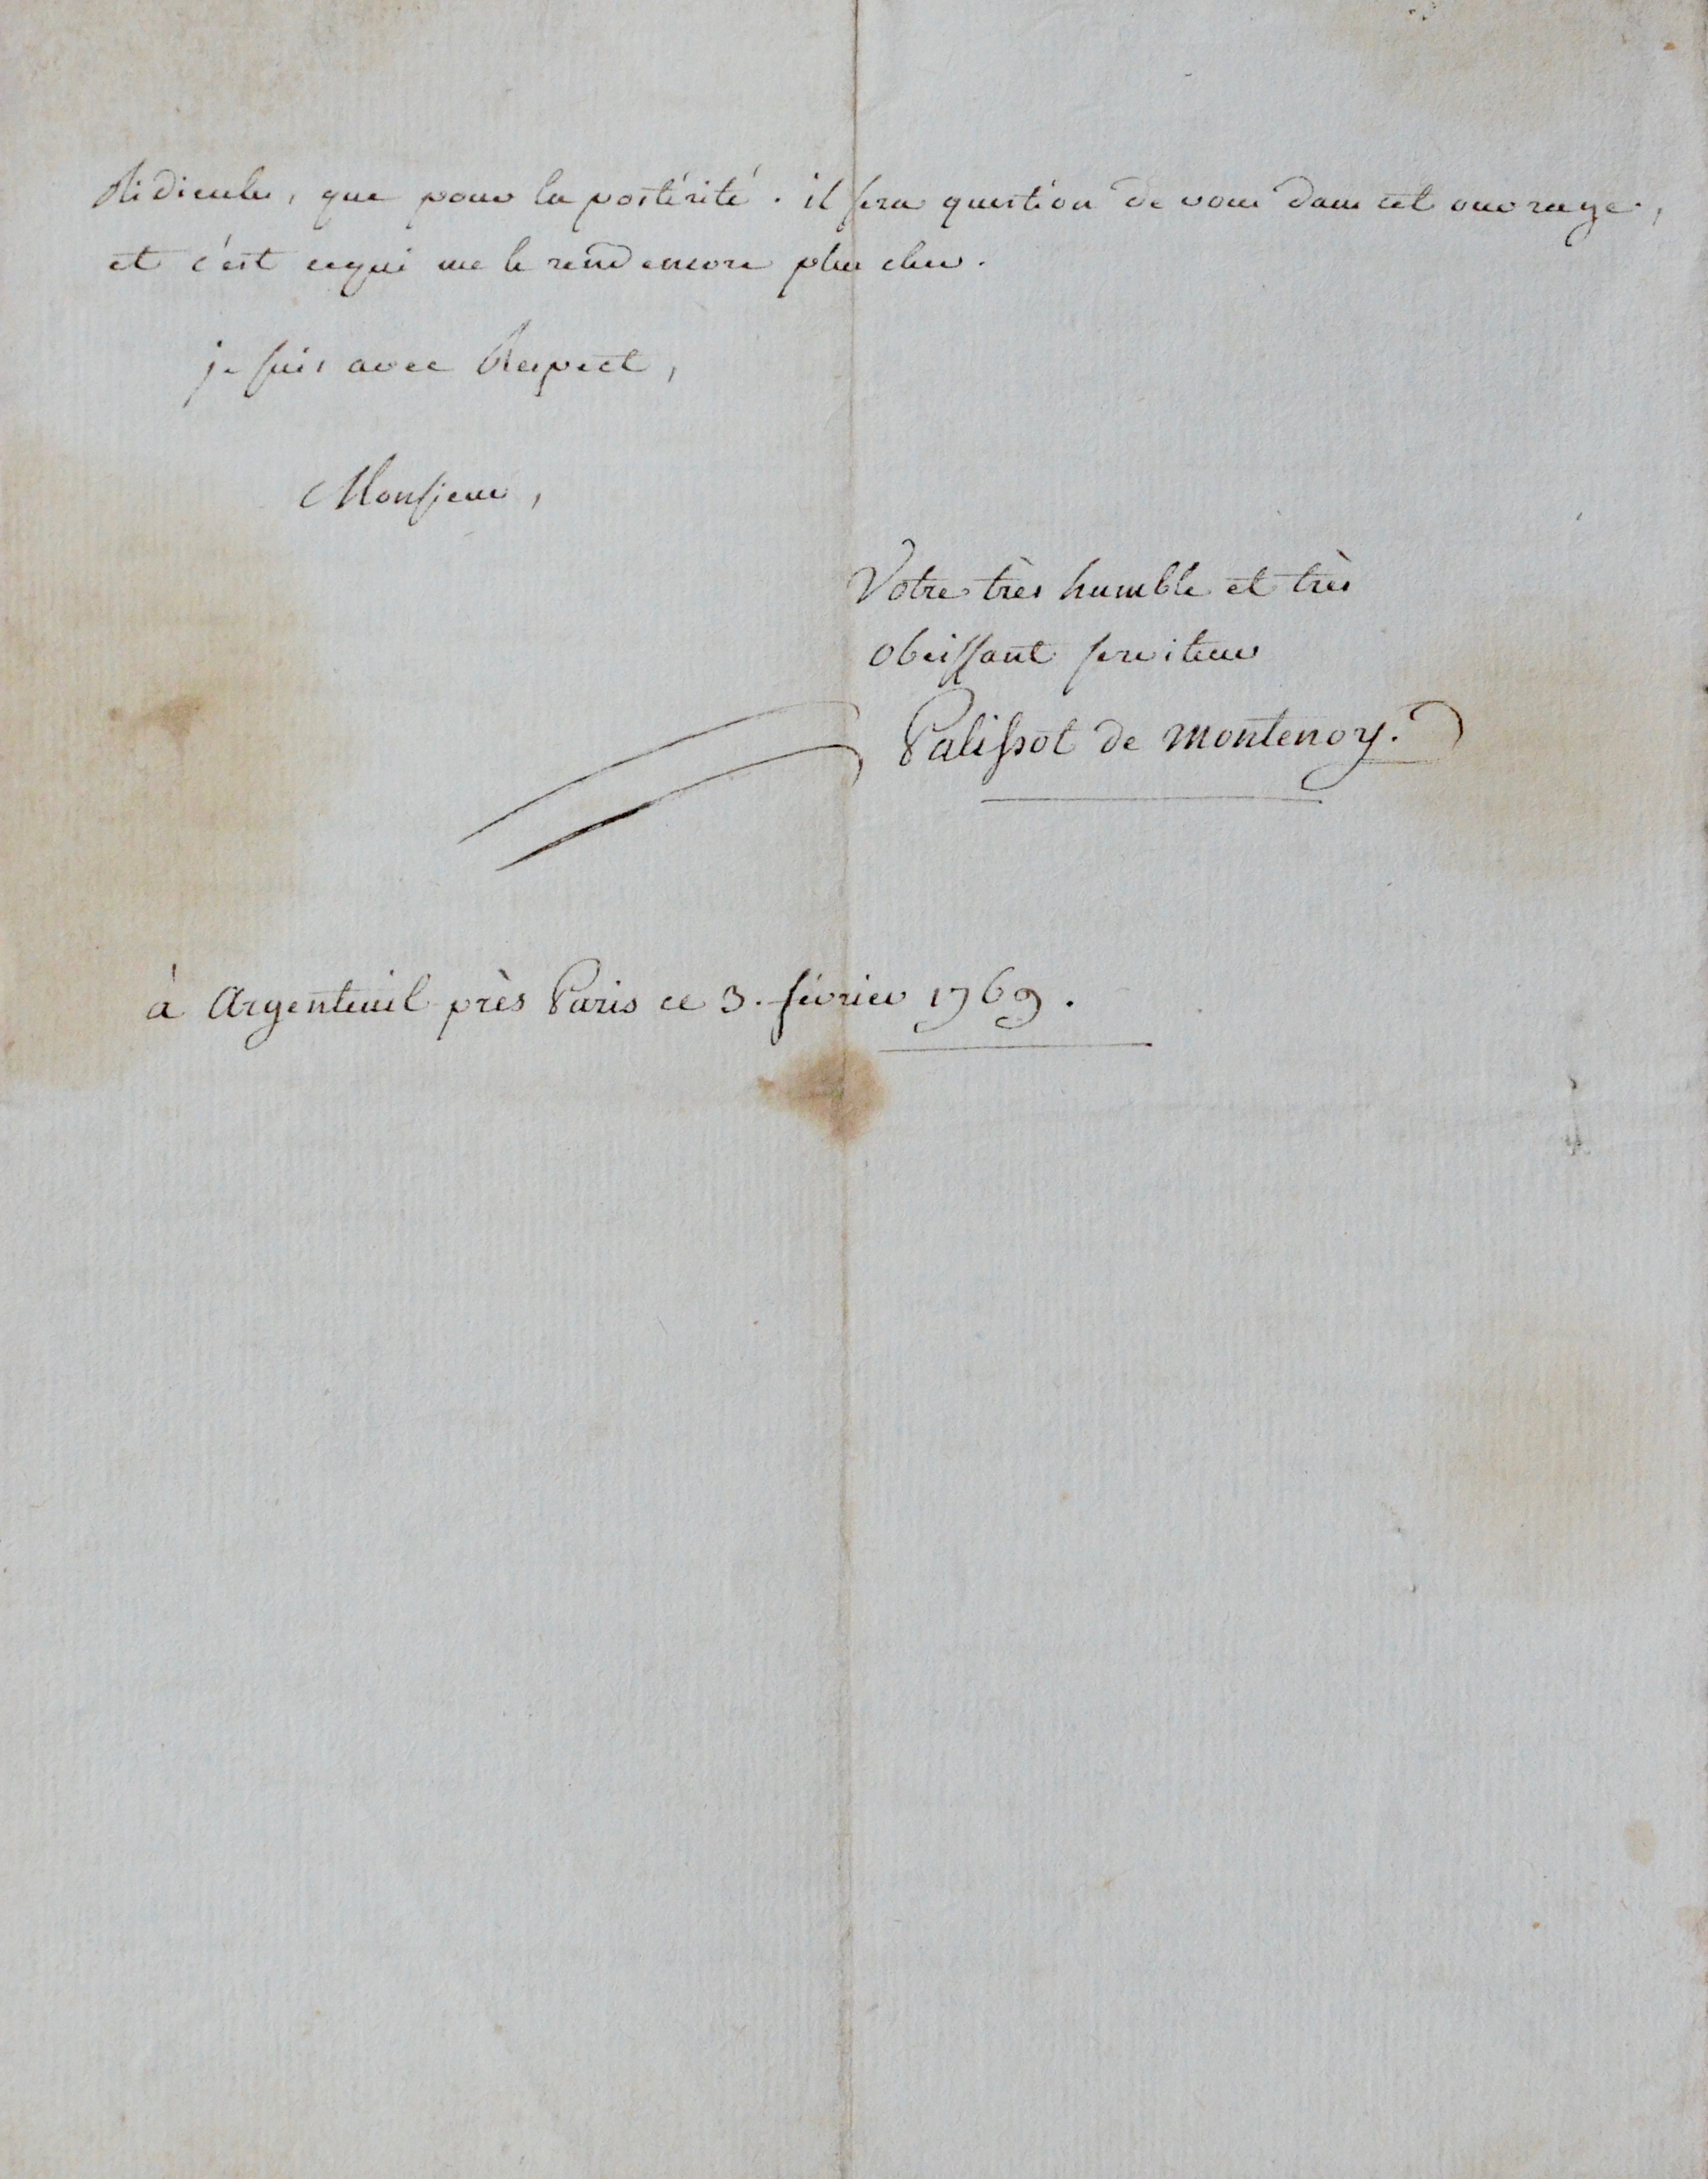 Ridicules, que pour la postérité. il sera question de vous dans cet ouvrage,
et c'est cequi me le rend encore plus cher.
je suis avec Respect,
Monsieur,
Votre très humble et très
obeissant serviteur
Palissot de montenoy.
à Argenteuil près Paris ce 3. février 1769.